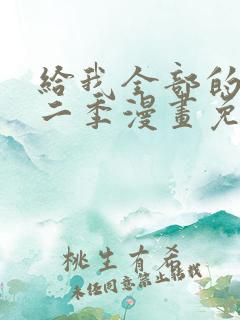 給我全部的
二季漫畫免
桃生有希
未经同意禁止转载